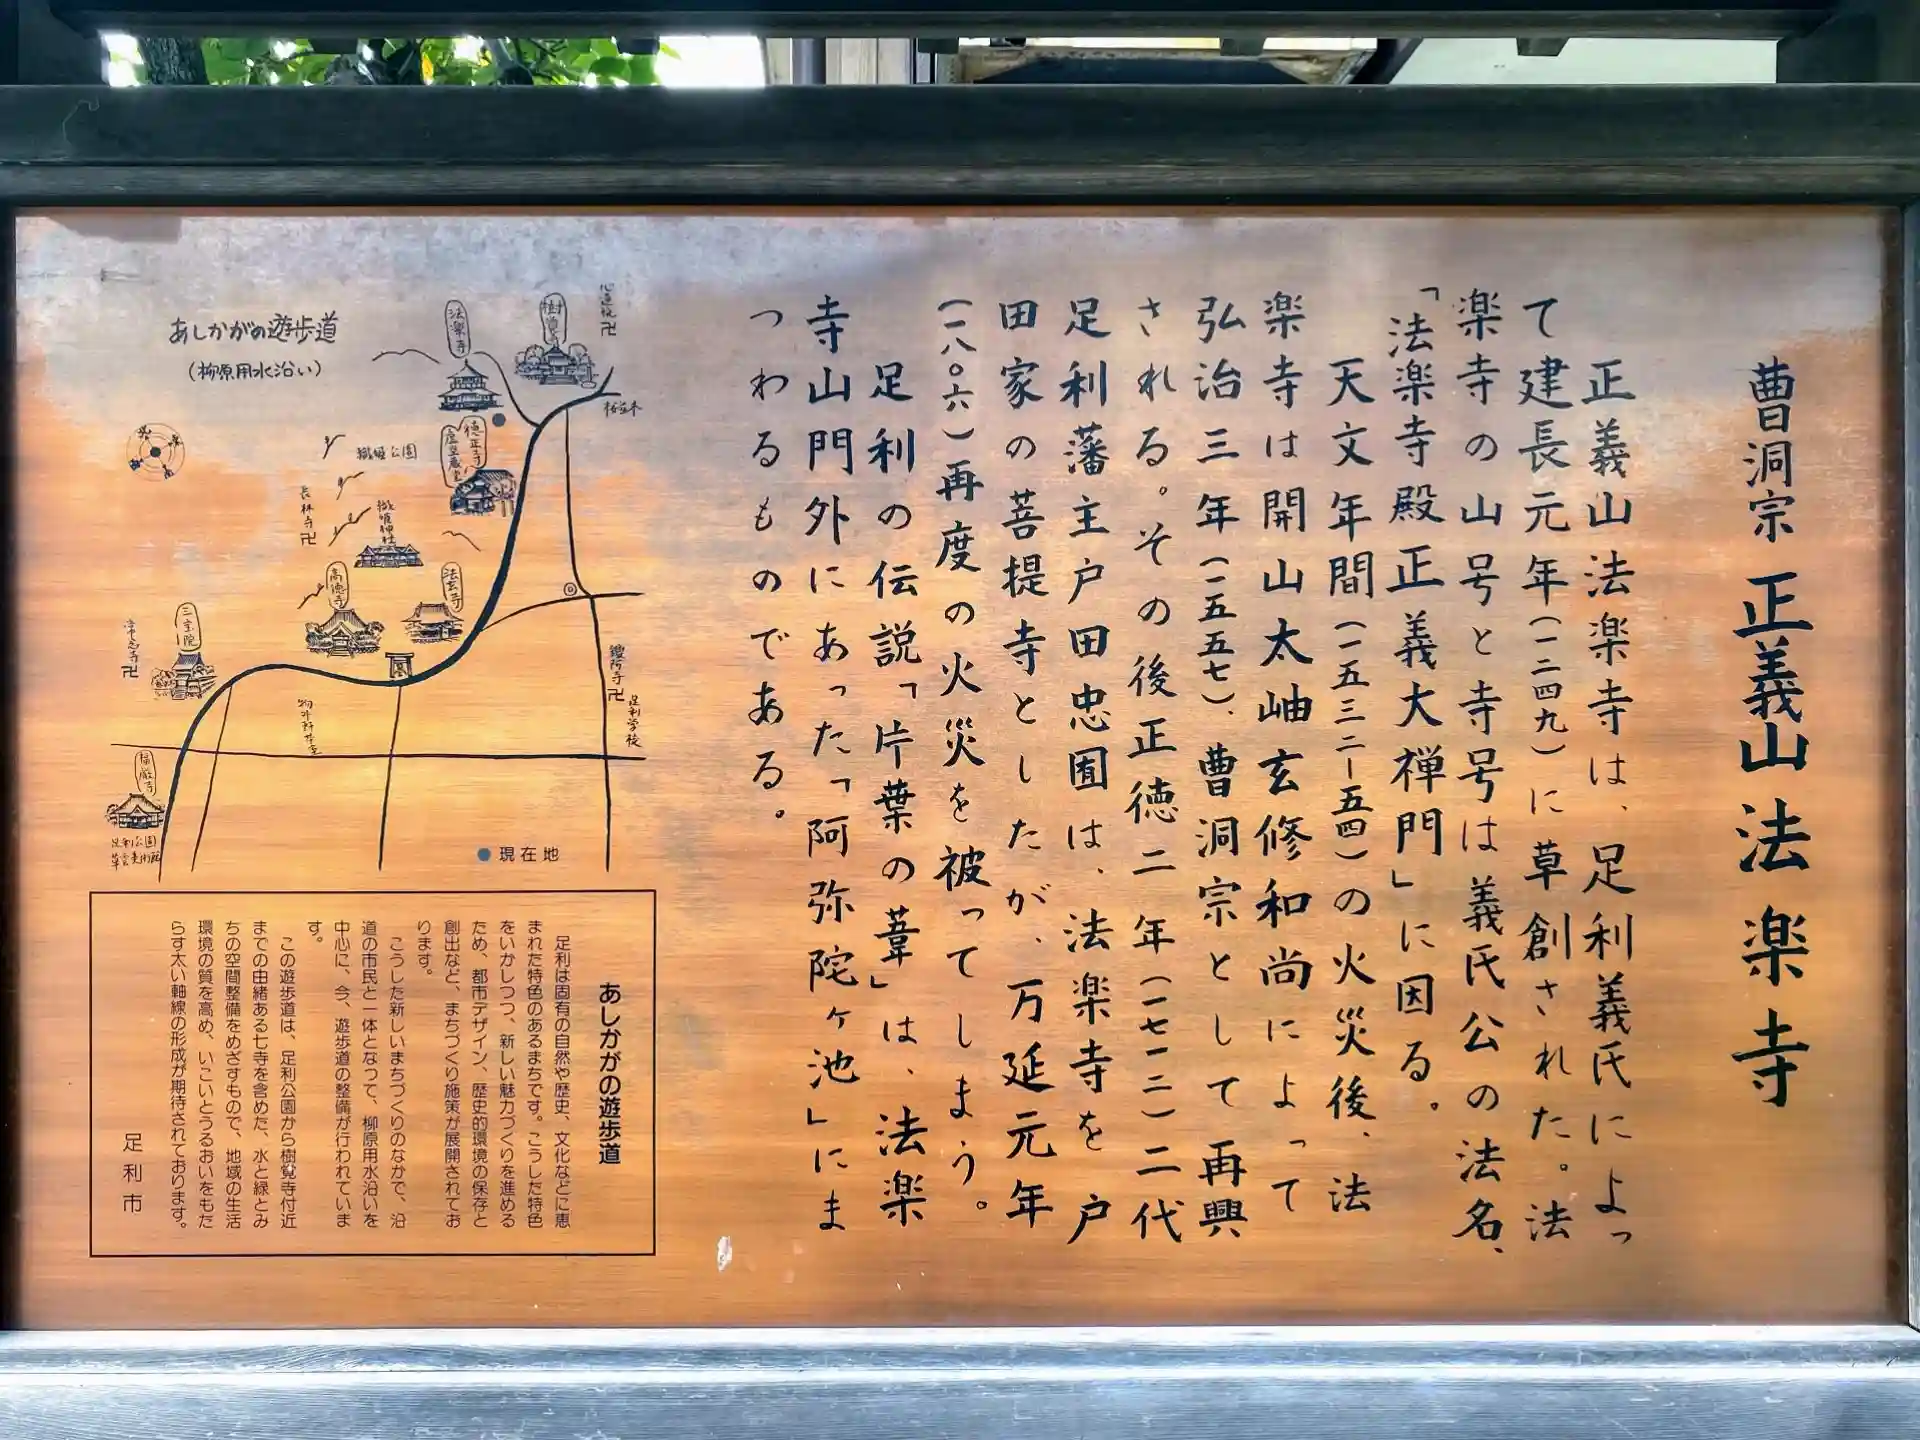 曹洞宗 正義山 法楽寺
正義山法楽寺は、足利義氏によっ
て建長元年(一二四九)に草創された。法
楽寺の山号と寺号は義氏公の法名、
「法楽寺殿正義大禅門」に因る。
天文年間(一五三二ー五四)の火災後、法
楽寺は開山太岫玄修和尚によって
弘治三年(一五五七)、曹洞宗として再興
される。その後正徳二年(一七一二)二代
足利藩主戸田忠囿は、法楽寺を戸
田家の菩提寺としたが、万延元年
(一八〇六)再度の火災を被ってしまう。
足利の伝説「片葉の葦」は、法楽
寺山門外にあった「阿弥陀ヶ池」にま
つわるものである。
あしかがの遊歩道
(柳原用水沿い)
心通院卍
樹覚寺
法楽寺
徳正寺
織姫公園
織姫神社
長林寺卍
法玄寺
高徳寺
三宝院
常念寺卍
鑁阿寺卍
足利学校
福厳寺
足利公園
草雲美術館
現在地
あしかがの遊歩道
足利は固有の自然や歴史、文化などに恵
まれた特色のあるまちです。こうした特色
をいかしつつ、新しい魅力づくりを進める
ため、都市デザイン、歴史的環境の保存と
創出など、まちづくり施策が展開されてお
ります。
こうした新しいまちづくりのなかで、沿
道の市民と一体となって、柳原用水沿いを
中心に、今、遊歩道の整備が行われていま
す。
この遊歩道は、足利公園から樹覚寺付近
までの由緒ある七寺を含めた、水と緑とみ
ちの空間整備をめざすもので、地域の生活
環境の質を高め、いこいとうるおいをもた
らす太い軸線の形成が期待されております。
足利市